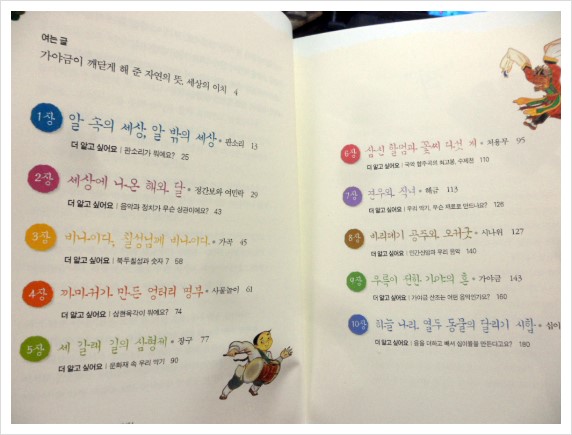 여는 글
가야금이 깨닫게 해 준 자연의 뜻, 세상의 이치 4
1장 알 속의 세상, 알 밖의 세상 • 판소리 13
더 알고 싶어요 | 판소리가 뭐예요? 25
2장 세상에 나온 해와 달 • 정간보와 여민락 29
더 알고 싶어요 | 음악과 정치가 무슨 상관이예요? 43
3장 비나이다, 칠성님께 비나이다 • 가곡 45
더 알고 싶어요 | 북두칠성과 숫자 7 58
4장 까마귀가 만든 엉터리 명부 • 사물놀이 61
더 알고 싶어요 | 삼현육각이 뭐예요? 74
5장 세 갈래 길의 삼형제 • 장구 77
더 알고 싶어요 | 문화재 속 우리 악기 90
6장 삼신 할멈과 꽃씨 다섯 개 • 처용무 95
더 알고 싶어요 | 국악 합주곡의 최고봉, 수제천 110
7장 견우와 직녀 • 해금 113
더 알고 싶어요 | 우리 악기, 무슨 재료로 만드나요? 126
8장 바리데기 공주와 오구굿 • 시나위 127
더 알고 싶어요 | 민간신앙과 우리 음악 140
9장 우륵이 전한 가야의 혼 • 가야금 143
더 알고 싶어요 | 가야금 산조는 어떤 음악인가요? 160
10장 하늘 나라, 열두 동물의 달리기 시합 • 십이
더 알고 싶어요 | 음을 더하고 빼서 십이율을 만든다고요? 180